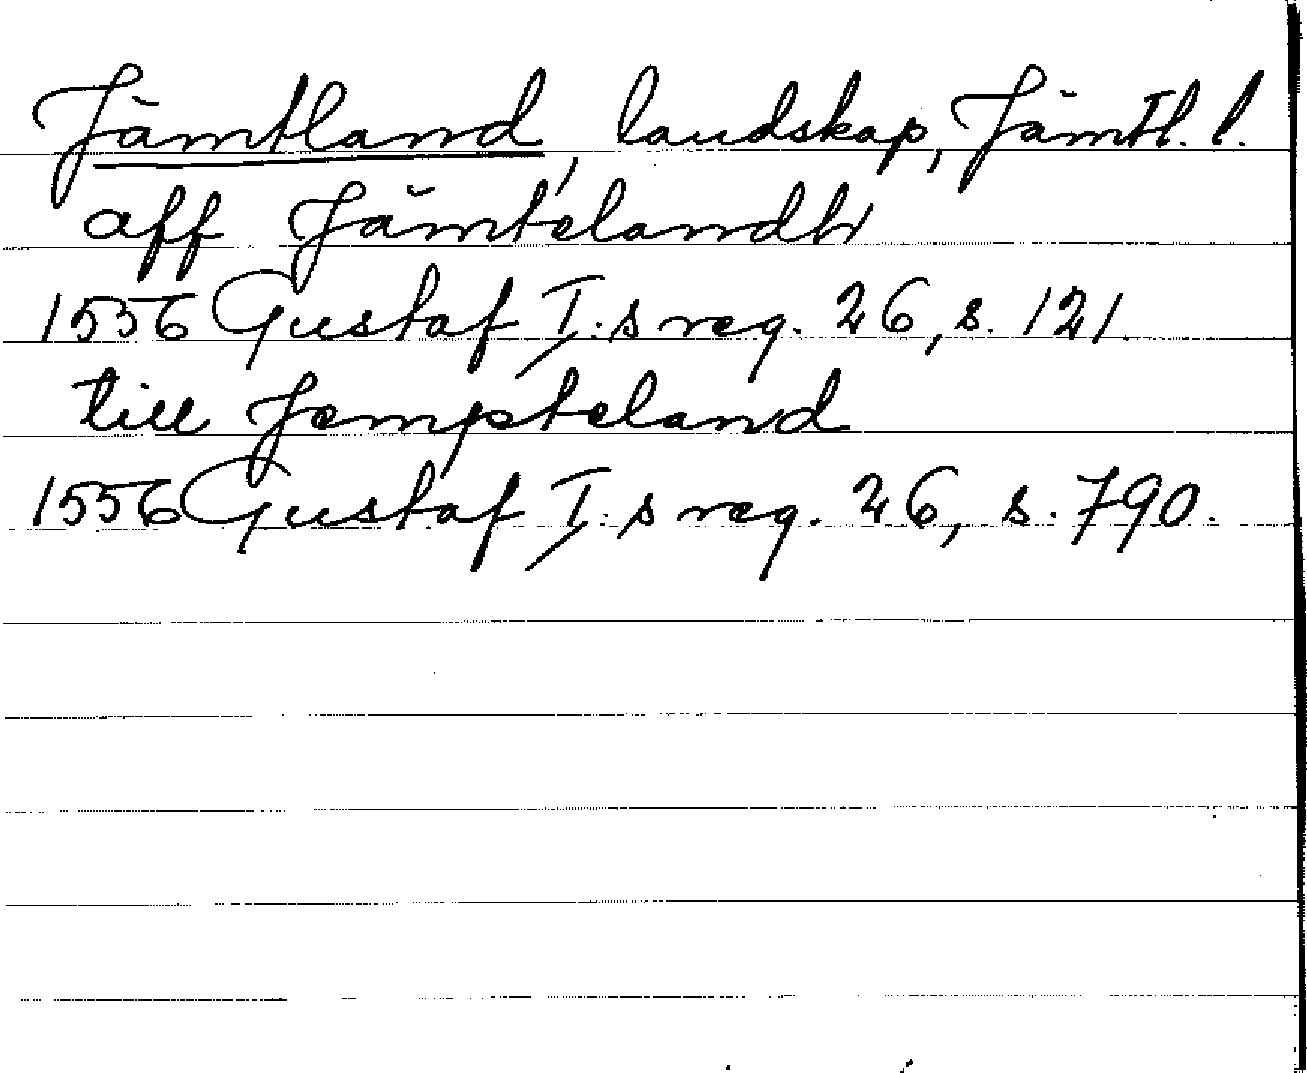 Jämtland, landskap, Jämtl. l.
aff Jämtelandh
1556 Gustaf I:s reg. 26, s. 121.
till Jempteland
1556 Gustaf I:s reg. 26, s. 790.